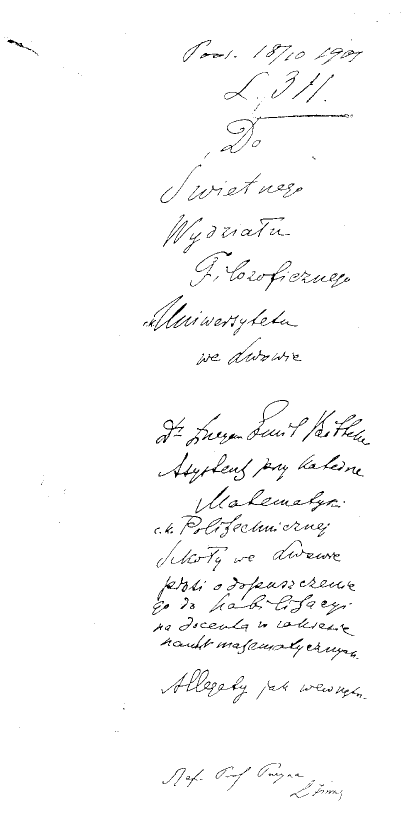 18/10 1901
L. 311.
Do
Swietnego
Wydziału
Filozoficznego
c.k. Uniwersytetu
we Lwowie
Dr Lucyan Emil Böttcher
Asystent przy Katedrze
Matematyki
c.k. Politechnicznej
Szkoły we Lwowie
prosi o dopuszczenie
go do habilitacyi
na docenta w zakresie
nauk matematycznych.
Allegaty jak wewnątrz.
Ref. Prof. Puzyna